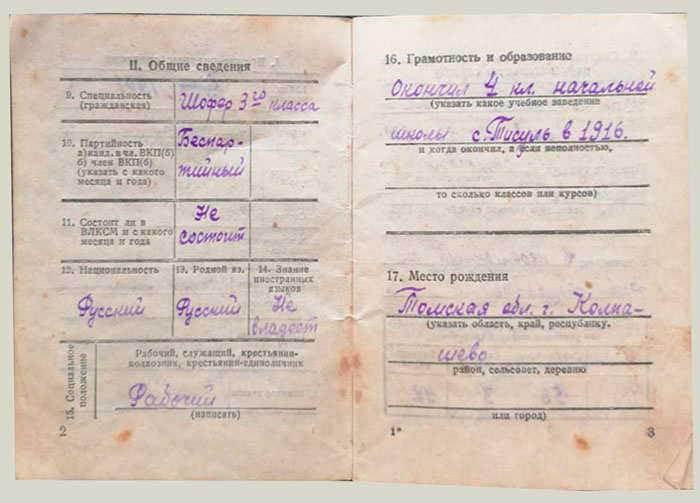 II. Общие сведения
9. Специальность
(гражданская)
Шофер 3го класса
10. Партийность
а) канд. в чл. ВКП(б)
б) член ВКП(б)
(указать с какого
месяца и года)
Беспар-
тийный
11. Состоит ли в
ВЛКСМ и с какого
месяца и года
Не
состоит
12. Национальность
Русский
13. Родной яз.
Русский
14. Знание
иностранных
языков
Не
владеет
15. Социальное
положение
Рабочий, служащий, крестьянин-
колхозник, крестьянин-единоличник
Рабочий
(написать)
2
16. Грамотность и образование
Окончил 4 кл. начальной
(указать какое учебное заведение
школы с. Тисуль в 1916.
и когда окончил, а если неполностью,
то сколько классов или курсов)
17. Место рождения
Томская обл. г. Колпа-
(указать область, край, республику,
шево
район, сельсовет, деревню
или город)
1*
3